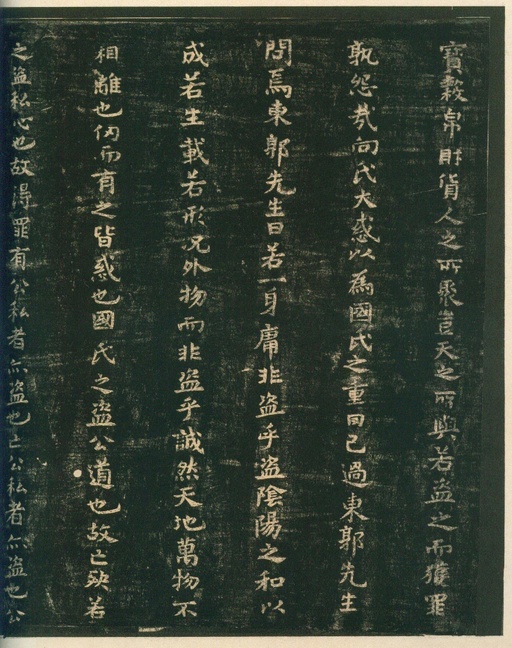 寶穀帛財貨人之所聚豈天之所與若盜之而獲罪
孰怨㢤向氏大惑以為國氏之重罔己過東郭先生
問焉東郭先生曰若一身庸非盜乎盜陰陽之和以
成若生載若形况外物而非盜乎誠然天地萬物不
相離也仞而有之皆惑也國氏之盜公道也故亡殃若
之盜私心也故得罪有公私者亦盜也亡公私者亦盜也公